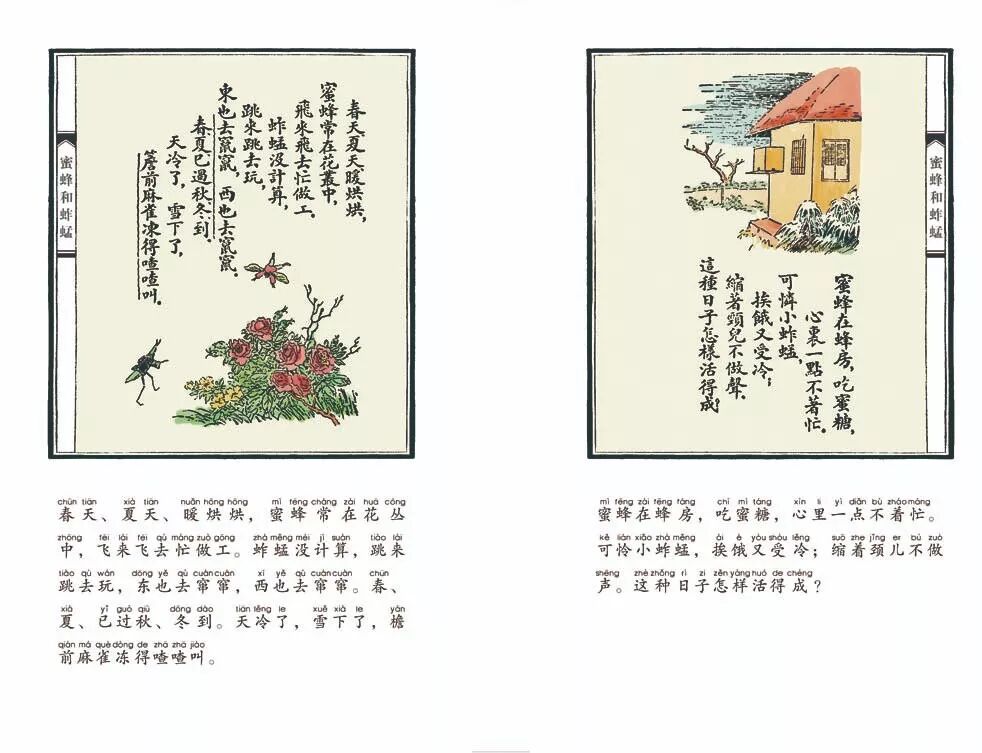 蜜蜂和蚱蜢
春天、夏天暖烘烘，
蜜蜂常在花叢中，
飛來飛去忙做工。
蚱蜢沒計算，
跳來跳去玩，
東也去竄竄，西也去竄竄。
春夏已過秋冬到。
天冷了，雪下了，
簷前麻雀凍得喳喳叫。
chūn tiān xià tiān nuǎn hōng hōng mì fēng cháng zài huā cóng
春天、夏天、暖烘烘，蜜蜂常在花丛
zhōng fēi lái fēi qù máng zuò gōng zhà měng méi jì suàn tiào lái
中，飞来飞去忙做工。蚱蜢没计算，跳来
tiào qù wán dōng yě qù cuàn cuàn xī yě qù cuàn cuàn chūn
跳去玩，东也去窜窜，西也去窜窜。春、
xià yǐ guò qiū dōng dào tiān lěng le xuě xià le yán
夏、已过秋、冬到。天冷了，雪下了，檐
qián má què dòng de zhā zhā jiào
前麻雀冻得喳喳叫。
蜜蜂和蚱蜢
蜜蜂在蜂房，吃蜜糖，
心裏一點不着忙。
可憐小蚱蜢，
挨餓又受冷；
縮著頸兒不做聲。
這種日子怎樣活得成
mì fēng zài fēng fáng chī mì táng xīn li yì diǎn bù zháo máng
蜜蜂在蜂房，吃蜜糖，心里一点不着忙。
kě lián xiǎo zhà měng ái è yòu shòu lěng suō zhe jǐng er bú zuò
可怜小蚱蜢，挨饿又受冷；缩着颈儿不做
shēng zhè zhǒng rì zi zěn yàng huó de chéng
声。这种日子怎样活得成？